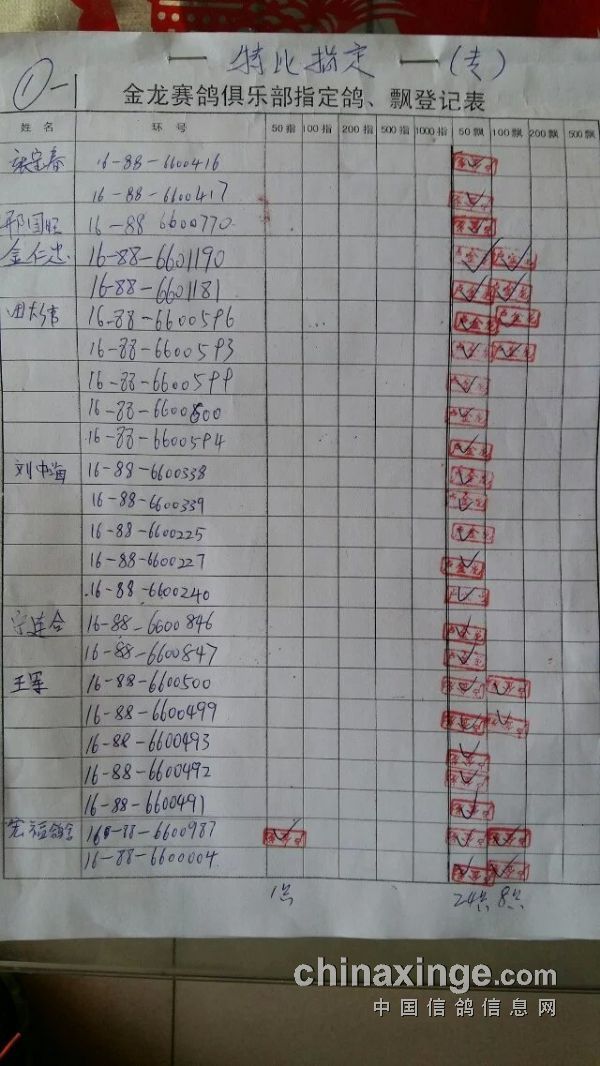 特比指定 (专)
①-1
金龙赛鸽俱乐部指定鸽、飘登记表
姓名 环号 50指 100指 200指 500指 1000指 50飘 100飘 200飘 500飘
16-88-6600416
16-88-6600417
邢国旺 16-88 6600770
金仁忠 16-88-6601190
16-88-6601181
田大伟 16-88-6600596
16-88-6600593
16-88-6600599
16-88-6600600
16-88-6600594
刘中海 16-88-6600338
16-88-6600339
16-88-6600225
16-88-6600227
16-88-6600240
宁连合 16-88-6600846
16-88-6600847
王军 16-88-6600500
16-88-6600499
16-88-6600493
16-88-6600492
16-88-6600491
16-88-6600987
16-88-6600004
1只 24只 8只
chinaxinge.com
中国信鸽信息网